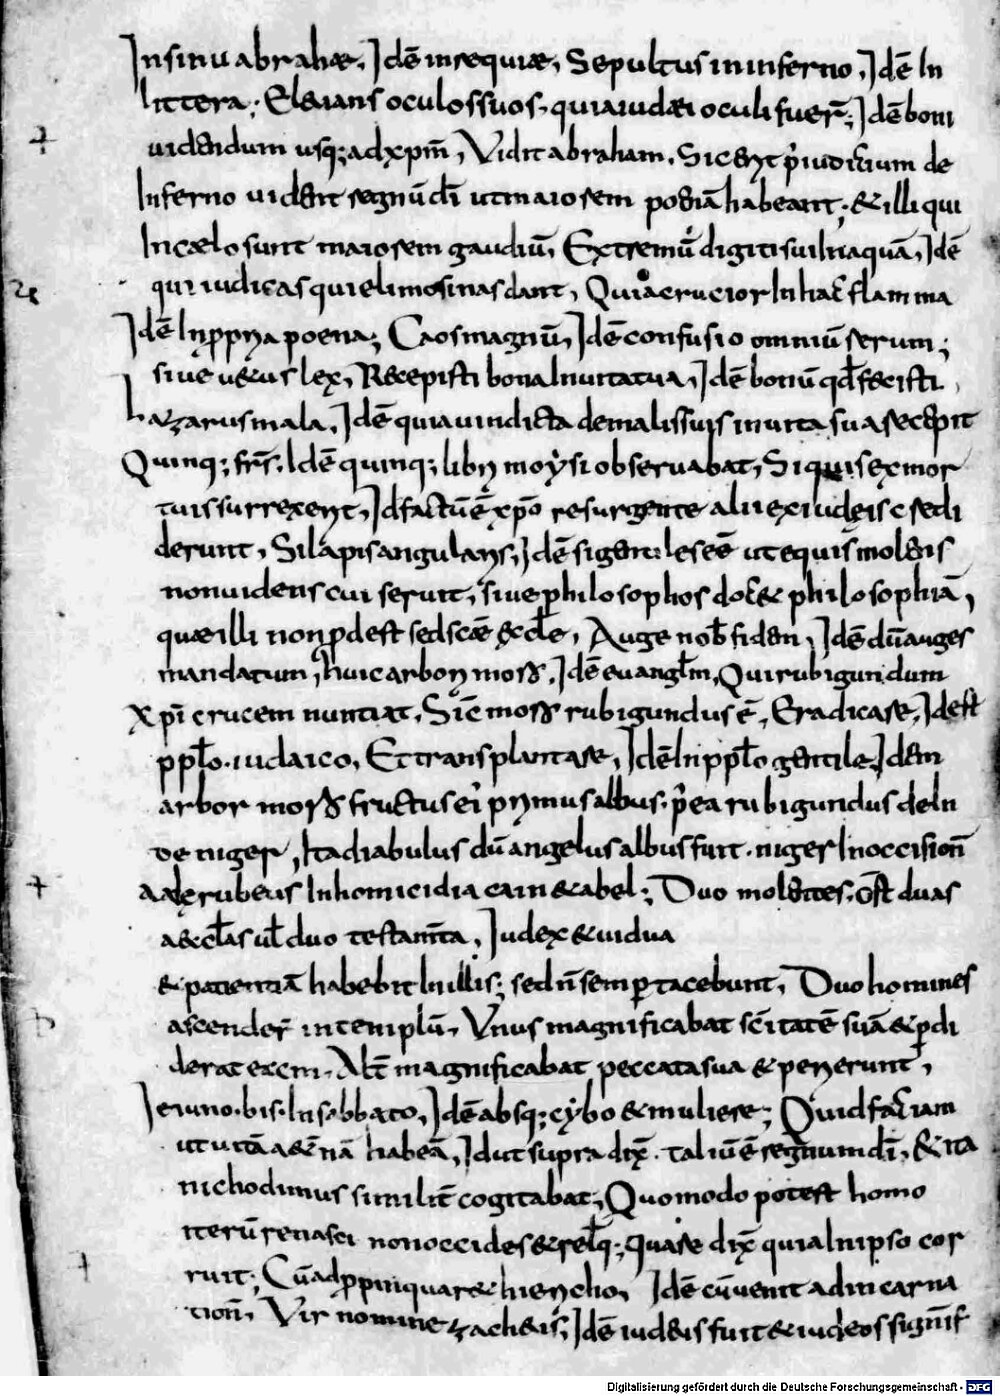 In sinu abrahæ, Idē in requiæ, Sepultus in inferno, Idē In
littera; Eleuans oculos suos, quia iudæi oculi fuer̄; Idē boni
uidendum usq; ad xpm̄, Vidit abraham, Sic enī p̄ iudicium de
Inferno uident regnū dī ut maiorem poenā habeant; & illi qui
In cælo sunt maiorem gaudiū, Extremū digiti sui In aquā, Idē
qui iudicas qui elimosinas dant, Quia crucior In hac flamma
Idē In ꝓpria poena; Caos magnū, Idē confusio omniū rerum;
siue uetus lex, Recepisti bona In uita tua, Idē bonū qđ fecisti,
Lazarus mala, Idē quia uindicta de malis suis in uita sua recepit
Quinq; fr̄s, Idē quinq; libri moysi obseruabat, Si quis ex mor
tuis surrexerit, Id factū ē xp̄o resurgente alii ex iudeis c redi
derunt, Si lapis angularis, Idē si gentiles eē ut equus molens
non uidens cui seruit, siue philosophos doc& philosophiā,
quæ illi non ꝓdest sed scæ eccłe, Auge nob̄ fidem, Idē dū auges
mandatum, huic arbori mori, Idē euangłm, Qui rubigundum
Xp̄i crucem nuntiat, Sic mori rubigundus ē, Eradicare, Id est
ppło iudaico, Et transplantare, Idē In ppło gentile, Idem
arbor mori fructus ei primus albus, p̄ ea rubigundus dein
de niger, Ita diabulus dū angelus albus fuit, niger In occisionē
adę rubeus In homicidia cain & abel; Duo molentes, id est duas
aecclas uł duo testam̄ta, Iudex & uidua
& patientiā habebit In illis; sed ñ semp tacebunt, Duo homines
ascender̄ in templū, Vnus magnificabat scītatē suā & ꝑdi
derat eam, Alt̄ magnificabat peccata sua & perierunt,
Ieiuno bis In sabbato, Idē absq; cybo & muliere; Quid faciam
ut uitā aet̄nā habeā, Id ut supra dix̄ talium ē regnum dī, & ita
nichodimus similit̄ cogitabat, Quomodo potest homo
iterū renasci non occides & relq; quare dix̄ quia In ipso cor
ruit; Cū adpropinquar& hiericho, Idē cū uenit ad in carna
tion̄, Vir nomine zacheus, Idē iudeus fuit & iudeos signif